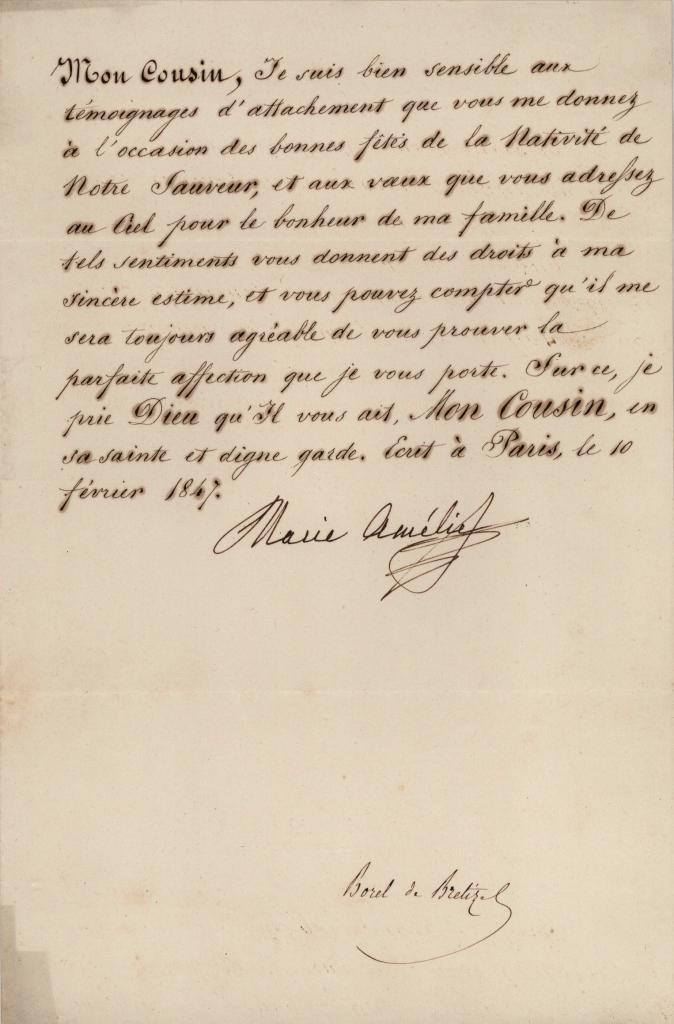 Mon Cousin, Je suis bien sensible aux
témoignages d'attachement que vous me donnez
à l'occasion des bonnes fêtes de la Nativité de
Notre Sauveur, et aux vœux que vous adressez
au Ciel pour le bonheur de ma famille. De
tels sentiments vous donnent des droits à ma
sincère estime, et vous pouvez compter qu'il me
sera toujours agréable de vous prouver la
parfaite affection que je vous porte. Sur ce, je
prie Dieu qu'Il vous ait, Mon Cousin, en
sa sainte et digne garde. Ecrit à Paris, le 10
février 1847.
Marie Amélie
Borel de Bretizel